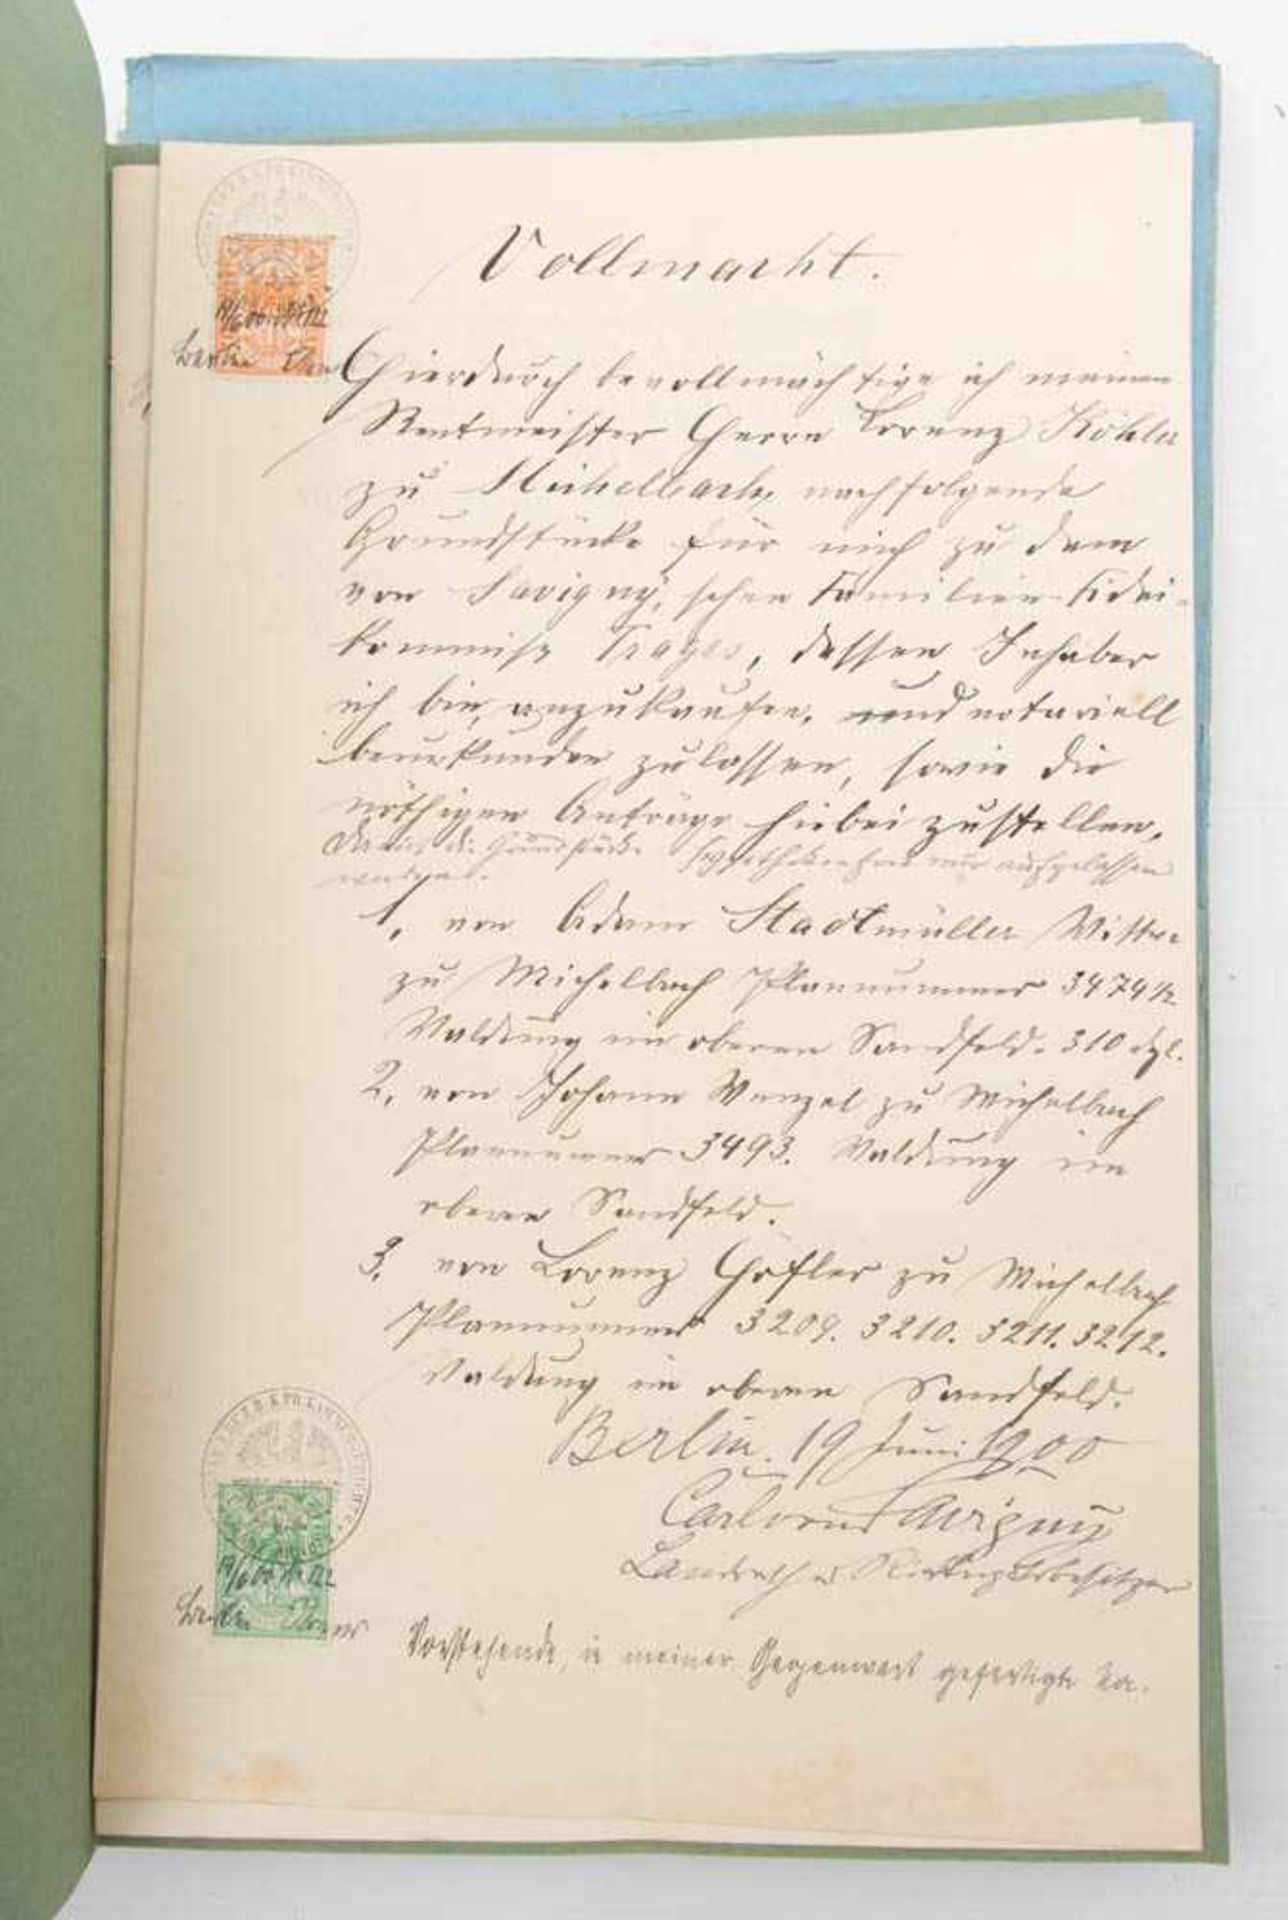 Vollmacht.
Hierdurch bevollmächtige ich meinen
Rentmeister Herrn Lorenz Köhler
zu Michelbach, nachfolgende
Grundstücke für mich zu dem
von Savigny'schen Familien-Fidei-
kommiss Trages, dessen Inhaber
ich bin, anzukaufen, und notariell
beurkunden zu lassen, sowie die
nöthigen Anträge hiebei zu stellen,
die Grundstücke Hypothekenfrei nur aufgelassen
werden.
1, von Adam Stadtmüller Wittwe
zu Michelbach Plannummer 3474 1/2
Waldung im oberen Sandfeld. 310 dzl.
2, von Johann Wenzel zu Michelbach
Plannummer 3493. Waldung im
oberen Sandfeld.
3, von Lorenz Höfler zu Michelbach
Plannummer 3209. 3210. 3211. 3212.
Waldung im oberen Sandfeld.
Berlin. 19 Juni 1900
Carl von Savigny
Landrath u Rittergutsbesitzer
Berlin
Vorstehende, in meiner Gegenwart gefertigte